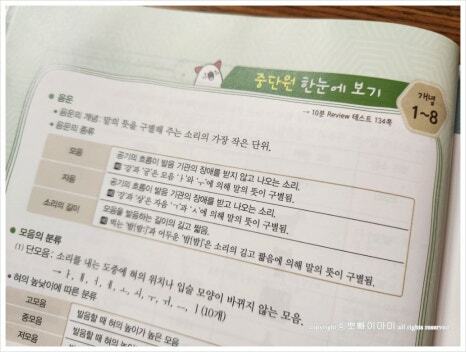 중단원 한눈에 보기
개념
1~8
→ 10분 Review 테스트 134쪽
• 음운
• 음운의 개념: 말의 뜻을 구별해 주는 소리의 가장 작은 단위.
• 음운의 종류
모음
공기의 흐름이 발음 기관의 장애를 받지 않고 나오는 소리.
'강'과 '궁'은 모음 'ㅏ'와 'ㅜ'에 의해 말의 뜻이 구별됨.
자음
공기의 흐름이 발음 기관의 장애를 받고 나오는 소리.
소리의 길이
모음을 발음하는 길이의 길고 짧음.
먹는 '밤[밤:]'과 어두운 '밤[밤]'은 소리의 길고 짧음에 의해 말의 뜻이 구별됨.
• 모음의 분류
(1) 단모음: 소리를 내는 도중에 혀의 위치나 입술 모양이 바뀌지 않는 모음.
(10개)
• 혀의 높낮이에 따른 분류
고모음
발음할 때 혀의 높이가 높은 모음
중모음
저모음
copyright ⓒ 뽀빠이아미 all rights reserved